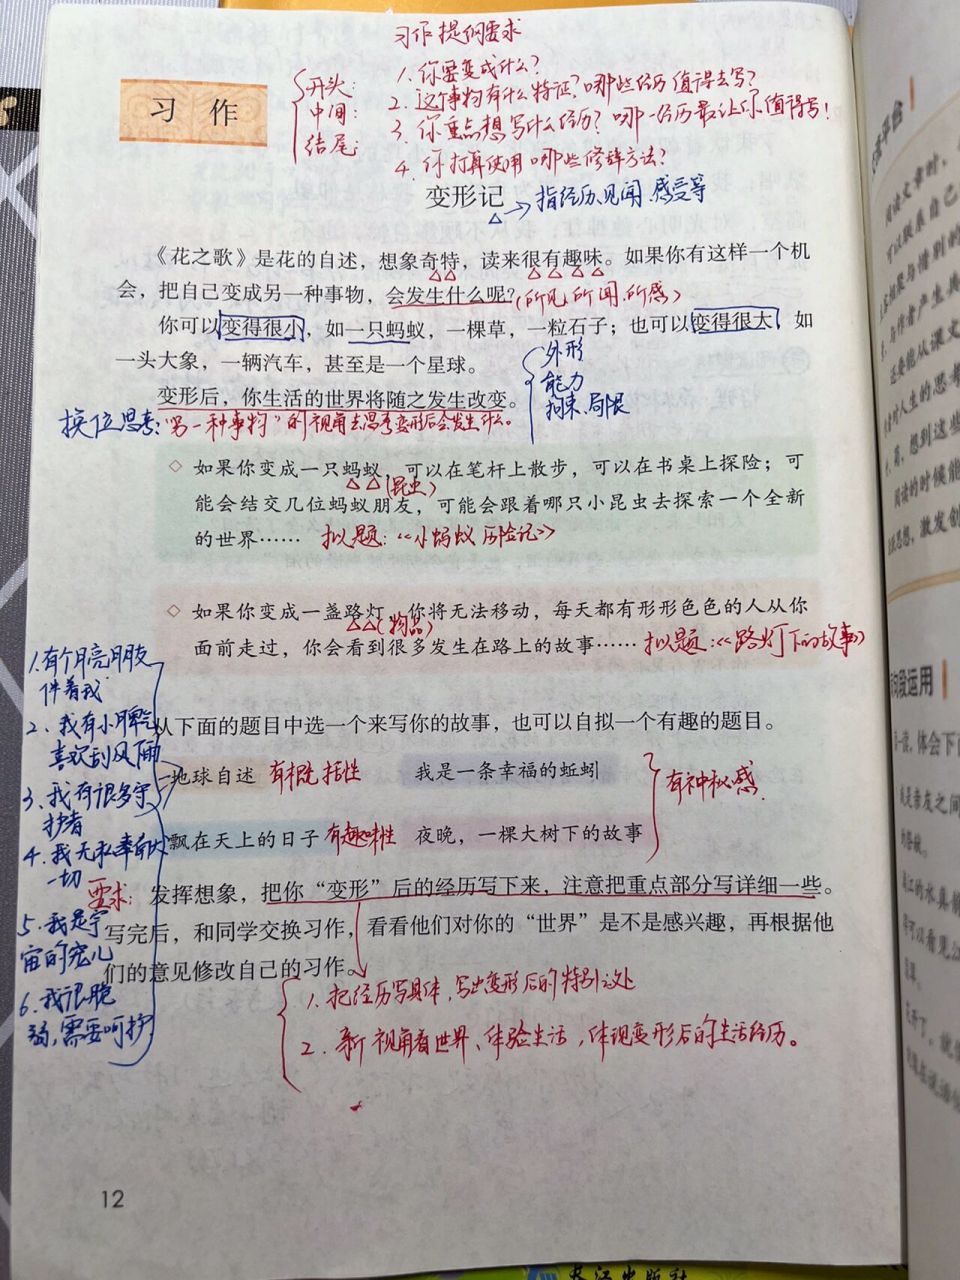 习作提纲要求
开头：
中间：
结尾：
1. 你要变成什么？
2. 这事物有什么特征？哪些经历值得去写？
3. 你重点想写什么经历？哪一经历最让你值得写！
4. 你打算使用哪些修辞方法？
习 作
变形记
指经历、见闻、感受等
《花之歌》是花的自述，想象奇特，读来很有趣味。如果你有这样一个机
会，把自己变成另一种事物，会发生什么呢？
（所见、所闻、所感）
你可以变得很小，如一只蚂蚁，一棵草，一粒石子；也可以变得很大，如
一头大象，一辆汽车，甚至是一个星球。
外形
能力
拘束、局限
变形后，你生活的世界将随之发生改变。
换位思考：“另一种事物”的视角去思考变形后会发生什么。
如果你变成一只蚂蚁，可以在笔杆上散步，可以在书桌上探险；可
（昆虫）
能会结交几位蚂蚁朋友，可能会跟着哪只小昆虫去探索一个全新
的世界……
拟题：《小蚂蚁历险记》
如果你变成一盏路灯，你将无法移动，每天都有形形色色的人从你
（物品）
面前走过，你会看到很多发生在路上的故事……
拟题：《路灯下的故事》
1. 有个月亮朋友
伴着我
2. 我有小脾气
喜欢刮风雨
3. 我有很多守
护者
4. 我无私奉献
一切
5. 我是宇
宙的宠儿
6. 我很脆
弱，需要呵护
从下面的题目中选一个来写你的故事，也可以自拟一个有趣的题目。
地球自述
有概括性
我是一条幸福的蚯蚓
有神秘感
飘在天上的日子
有趣味性
夜晚，一棵大树下的故事
要求：
发挥想象，把你“变形”后的经历写下来，注意把重点部分写详细一些。
写完后，和同学交换习作，看看他们对你的“世界”是不是感兴趣，再根据他
们的意见修改自己的习作。
1. 把经历写具体，写出变形后的特别之处
2. 新视角看世界、体验生活，体现变形后的生活经历。
12
句段运用
长江出版社